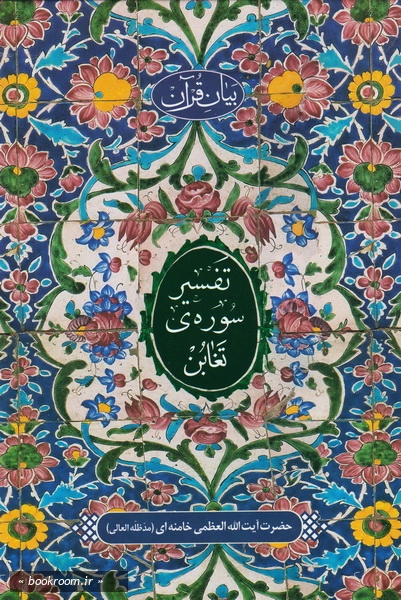 بیان قرآن
تفسیر
سوره‌ی
تغابن
حضرت آیت الله العظمی خامنه ای (مدظله العالی)
« bookroom.ir »